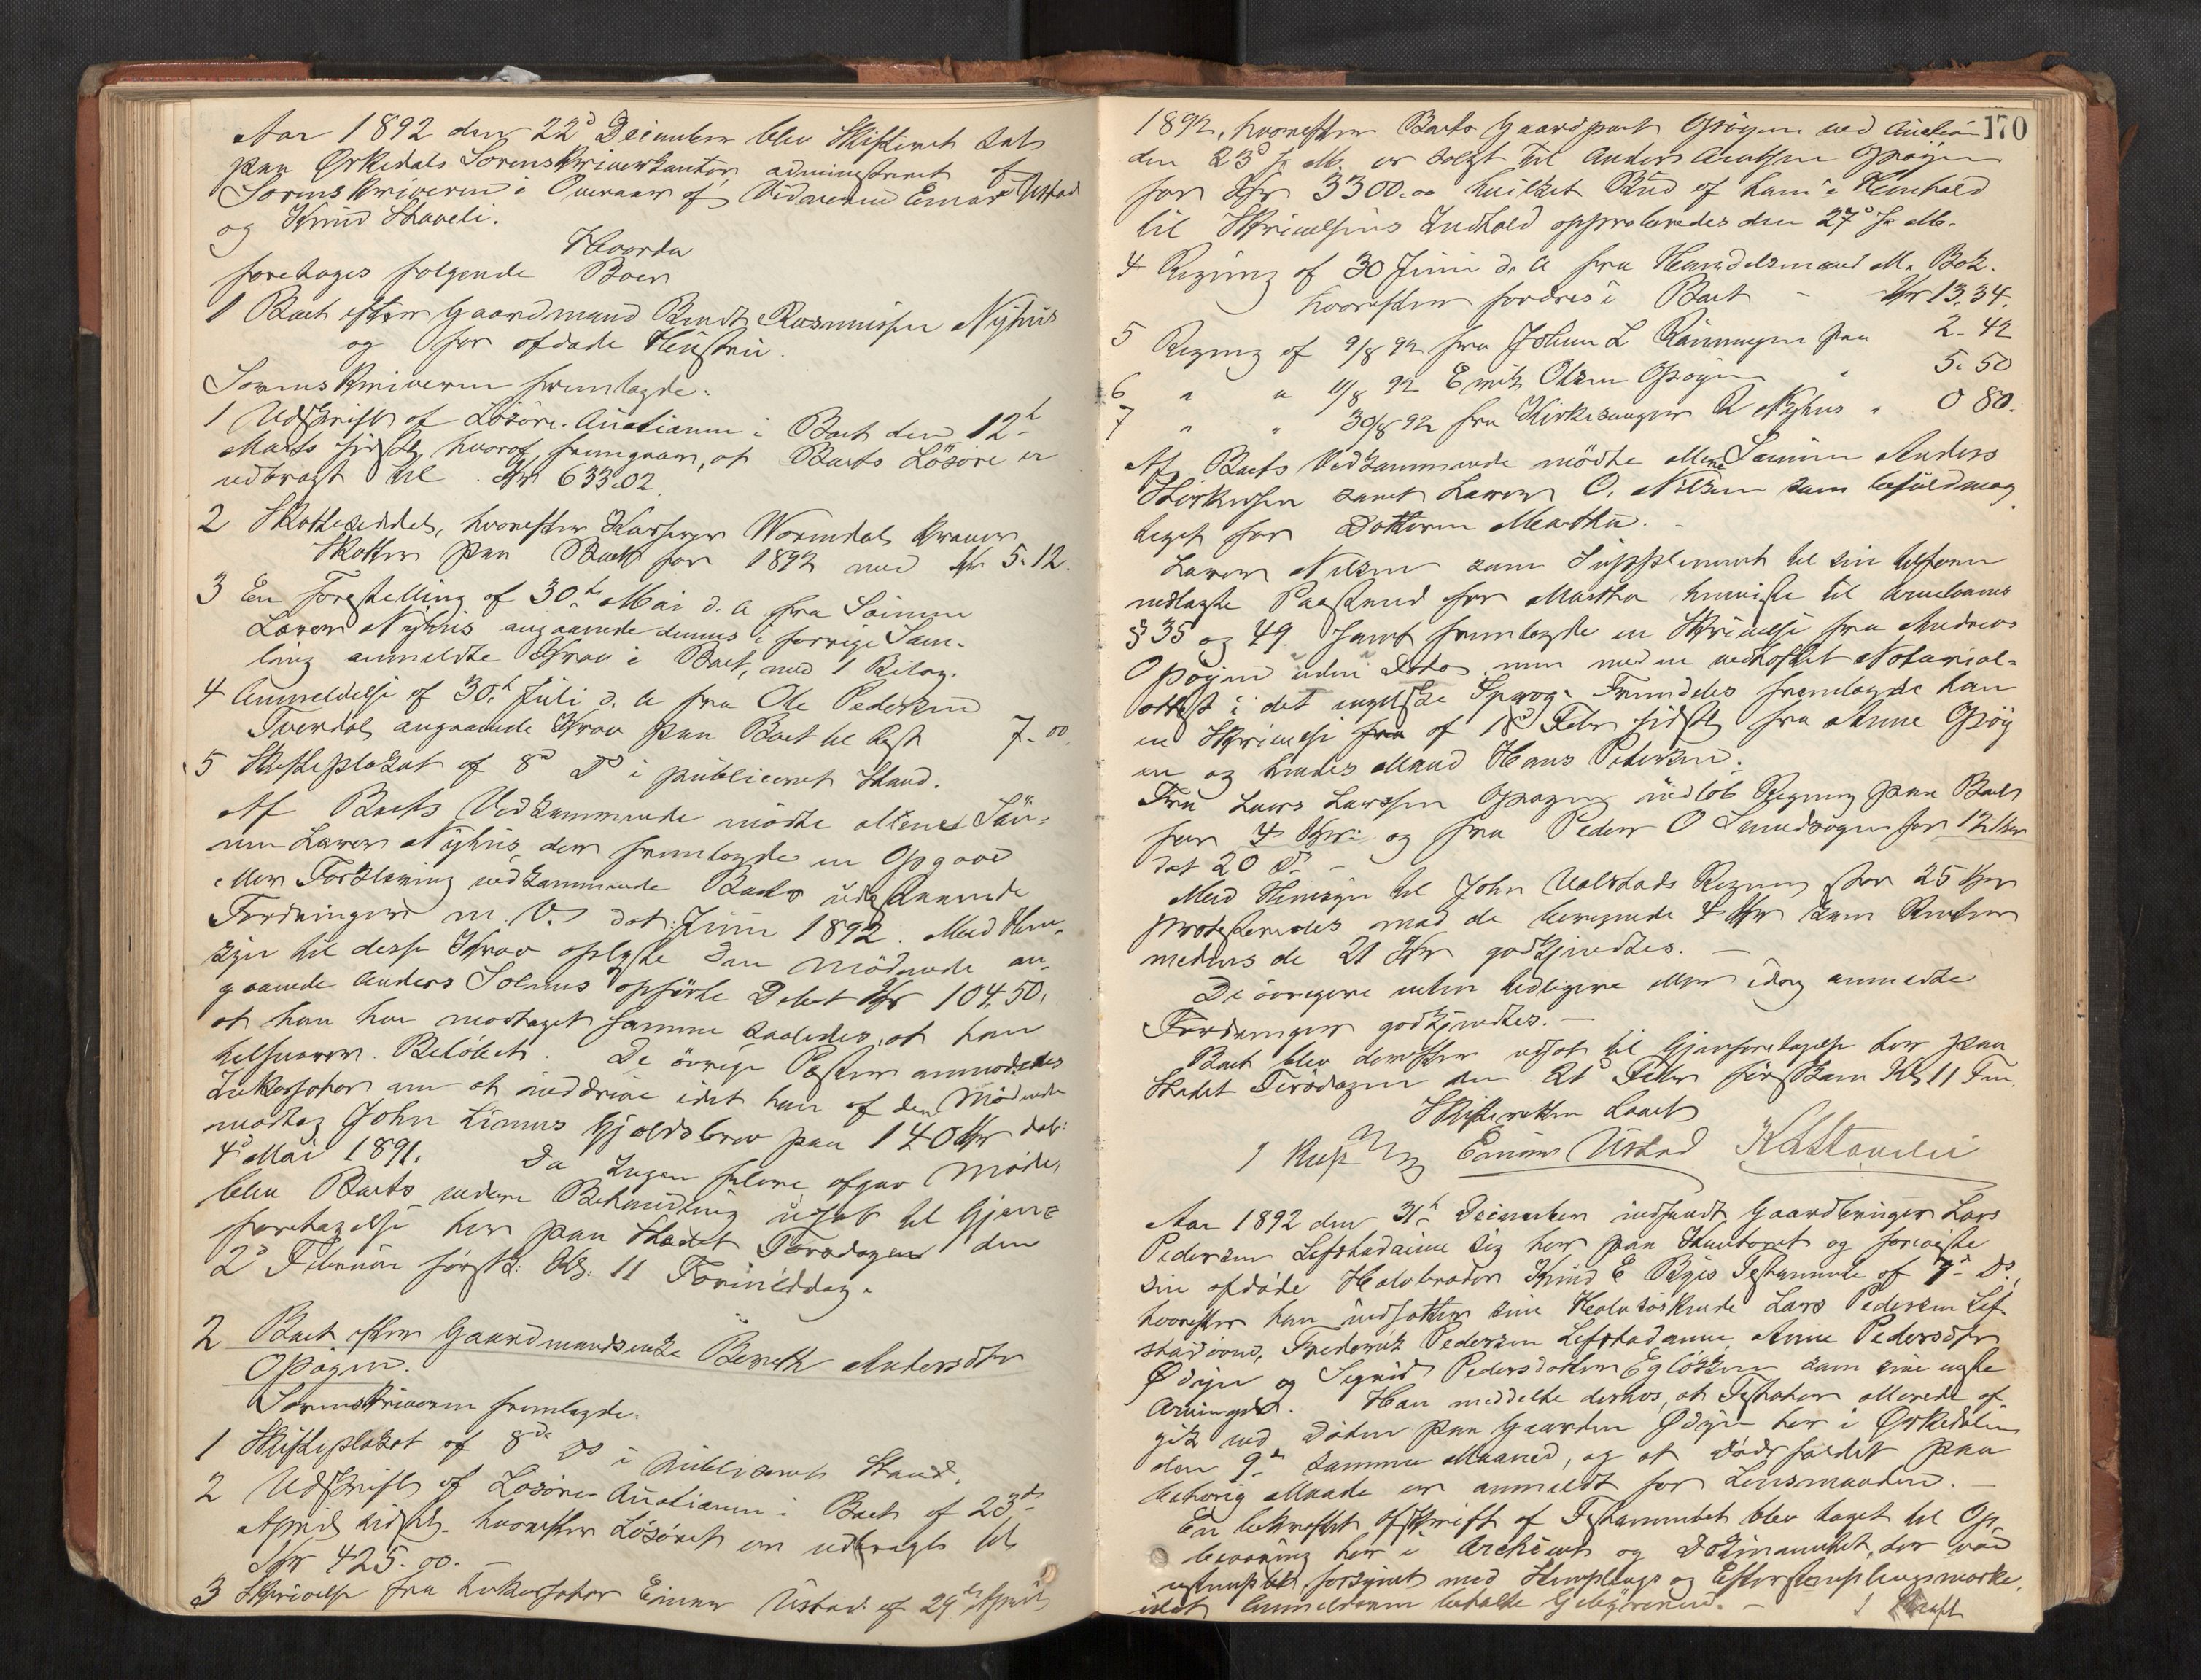 Aar 1892 den 22d December blev Skifteret sat
paa Ørkedals Sorenskriverkontor, administreret af
Sorenskriveren i Overvær af Vidnerne Einar Ustad
og Knud Skavli.
Hvorda
foretoges følgende Boer
1 Boet efter Gaardmand Bendt Rasmussen Nyhus
og før afdøde Hustru.
Sorenskriveren fremlagde:
1 Udskrift af Løsøre-Auctionen i Boet den 12te
Marts sidstl, hvoraf fremgaar, at Boets Løsøre er
udbragt til Kr 633.02.
2 Skatteseddel, hvorefter Kasserer Wormdal kræver
Skatten paa Boet for 1892 med Kr 5.12.
3 En Forestilling af 30te Mai d. A fra Sønnen
Laven Nyhus angaaende dennes i forrige Sam-
ling anmeldte Krav i Boet, med 1 Bilag.
4 Anmeldelse af 30te Juli d. A fra Ole Pedersen
angaaende Krav paa Boet til Rest 7.00.
5 Skifteplakat af 8d Ds i publiceret Stand.
Af Boets Vedkommende mødte allene Søn-
nen Laven Nyhus, der fremlagde en Opgave
eller Forklaring vedkommende Boets udestaaende
Fordringer m. V. dat: Juni 1892. Med Hen-
syn til disse Krav oplyste den Mødende an-
gaaende Anders Solemis opførte Debet Kr 104.50,
at han har modtaget samme saaledes, at han
tilsvarer Beløbet. De øvrige Poster anmodedes
Inkassator om at inddrive idet han af den Mødende
modtog John Limus Gjældsbrev paa 140 Kr dat:
4d Mai 1891. Da Ingen flere afgav Møde,
blev Boets videre Behandling udsat til Gjen-
foretagelse her paa Stedet Torsdagen den
2d Februar førstk: Kl: 11 Formiddag.
2 Boet efter Gaardmandsenke Bereth Andersdtr
Opøien.
Sorenskriveren fremlagde:
1 Skifteplakat af 8de Ds i publiceret Stand.
2 Udskrift af Løsøre-Auctionen i Boet af 23de
April sidstl. hvorefter Løsøret er udbragt til
Kr 425.00.
3 Skrivelse fra Inkassator Einar Ustad af 29de April
170
1892, hvorefter Boets Gaardpart Opøyen ved Auction
den 23d s. M. er solgt til Anders Opøyen
for Kr 3300.00 hvilket Bud af ham i Henhold
til Skrivelsens Indhold approberedes den 27d s. M.
4 Regning af 30 Juni d. A fra Handelsmand M. Bok.
hvorefter fordres i Boet - Kr 13.34.
5 Regning af 9/8 92 fra Johan L Rønningen paa 2.42
6 " " 11/8 92 Erik Olsen Opøyen " 5.50
7 " " 30/8 92 fra Kirkesanger R Nyhus " 0 80.
Af Boets Vedkommende mødte allene Sønnen Anders
samt Laven O. Nilsen som befuldmæg
tiget for Datteren Martha.
Laven Nilsen som Supplement til sin tilforn
nedlagte Paastand for Martha henviste til Arvelovens
§ 35 og 49 samt fremlagde en Skrivelse fra Andreas
Opøyen uden Dato, men med en vedhæftet Notarial-
attest i det engelske Sprog. Fremdeles fremlagde han
en Skrivelse fra af 18d Febr sidstl fra Anne Opøy
en og hendes Mand Hans Pedersen.
Fra Lars Larssen Opøyen indløb Regning paa Boet
for 4 Kr: og fra Peder O for 12 Kr
dat 20 Ds.
Med Hensyn til John Ualstads Regning stor 25 Kr
protesteredes mod de beregnede 4 Kr som Renter
medens de 21 Kr godkjendtes.
De øvrige enten tidligere eller idag anmeldte
Fordringer godkjendtes.
Boet blev derefter udsat til Gjenforetagelse her paa
Stedet Tirsdagen den 21d Febr førstkom Kl 11 Fm.
Skifteretten hævet
Einar Ustad K Skavli
Aar 1892 den 31te December indfandt Gaardbruger Lars
Pedersen Lefstadaune sig her paa Kontoret og foreviste
sin afdøde Halvbroder Knud E Byes Testamente af 7de Ds,
hvorefter han indsætter sine Halvsøskende Lars Pedersen Lef
stadaune, Frederik Pedersen Lefstadaune, Anne Pedersdtr
Ødyen og Sigrid Pedersdatter som sine eneste
Arvinger. Han meddelte derhos, at Testator allerede af
gik ved Døden paa Gaarden Ødyen her i Ørkedalen
den 9de samme Maaned, og at Dødsfaldet paa
behørig Maade er anmeldt for Lensmanden.
En bekræftet Afskrift af Testamentet blev taget til Op
bevaring her i Archivet og Dokumentet, der var
ustemplet, forsynet med Stemplings og Efterstemplingsmærke,
idet Anmelderen betalte Gebyrerne.